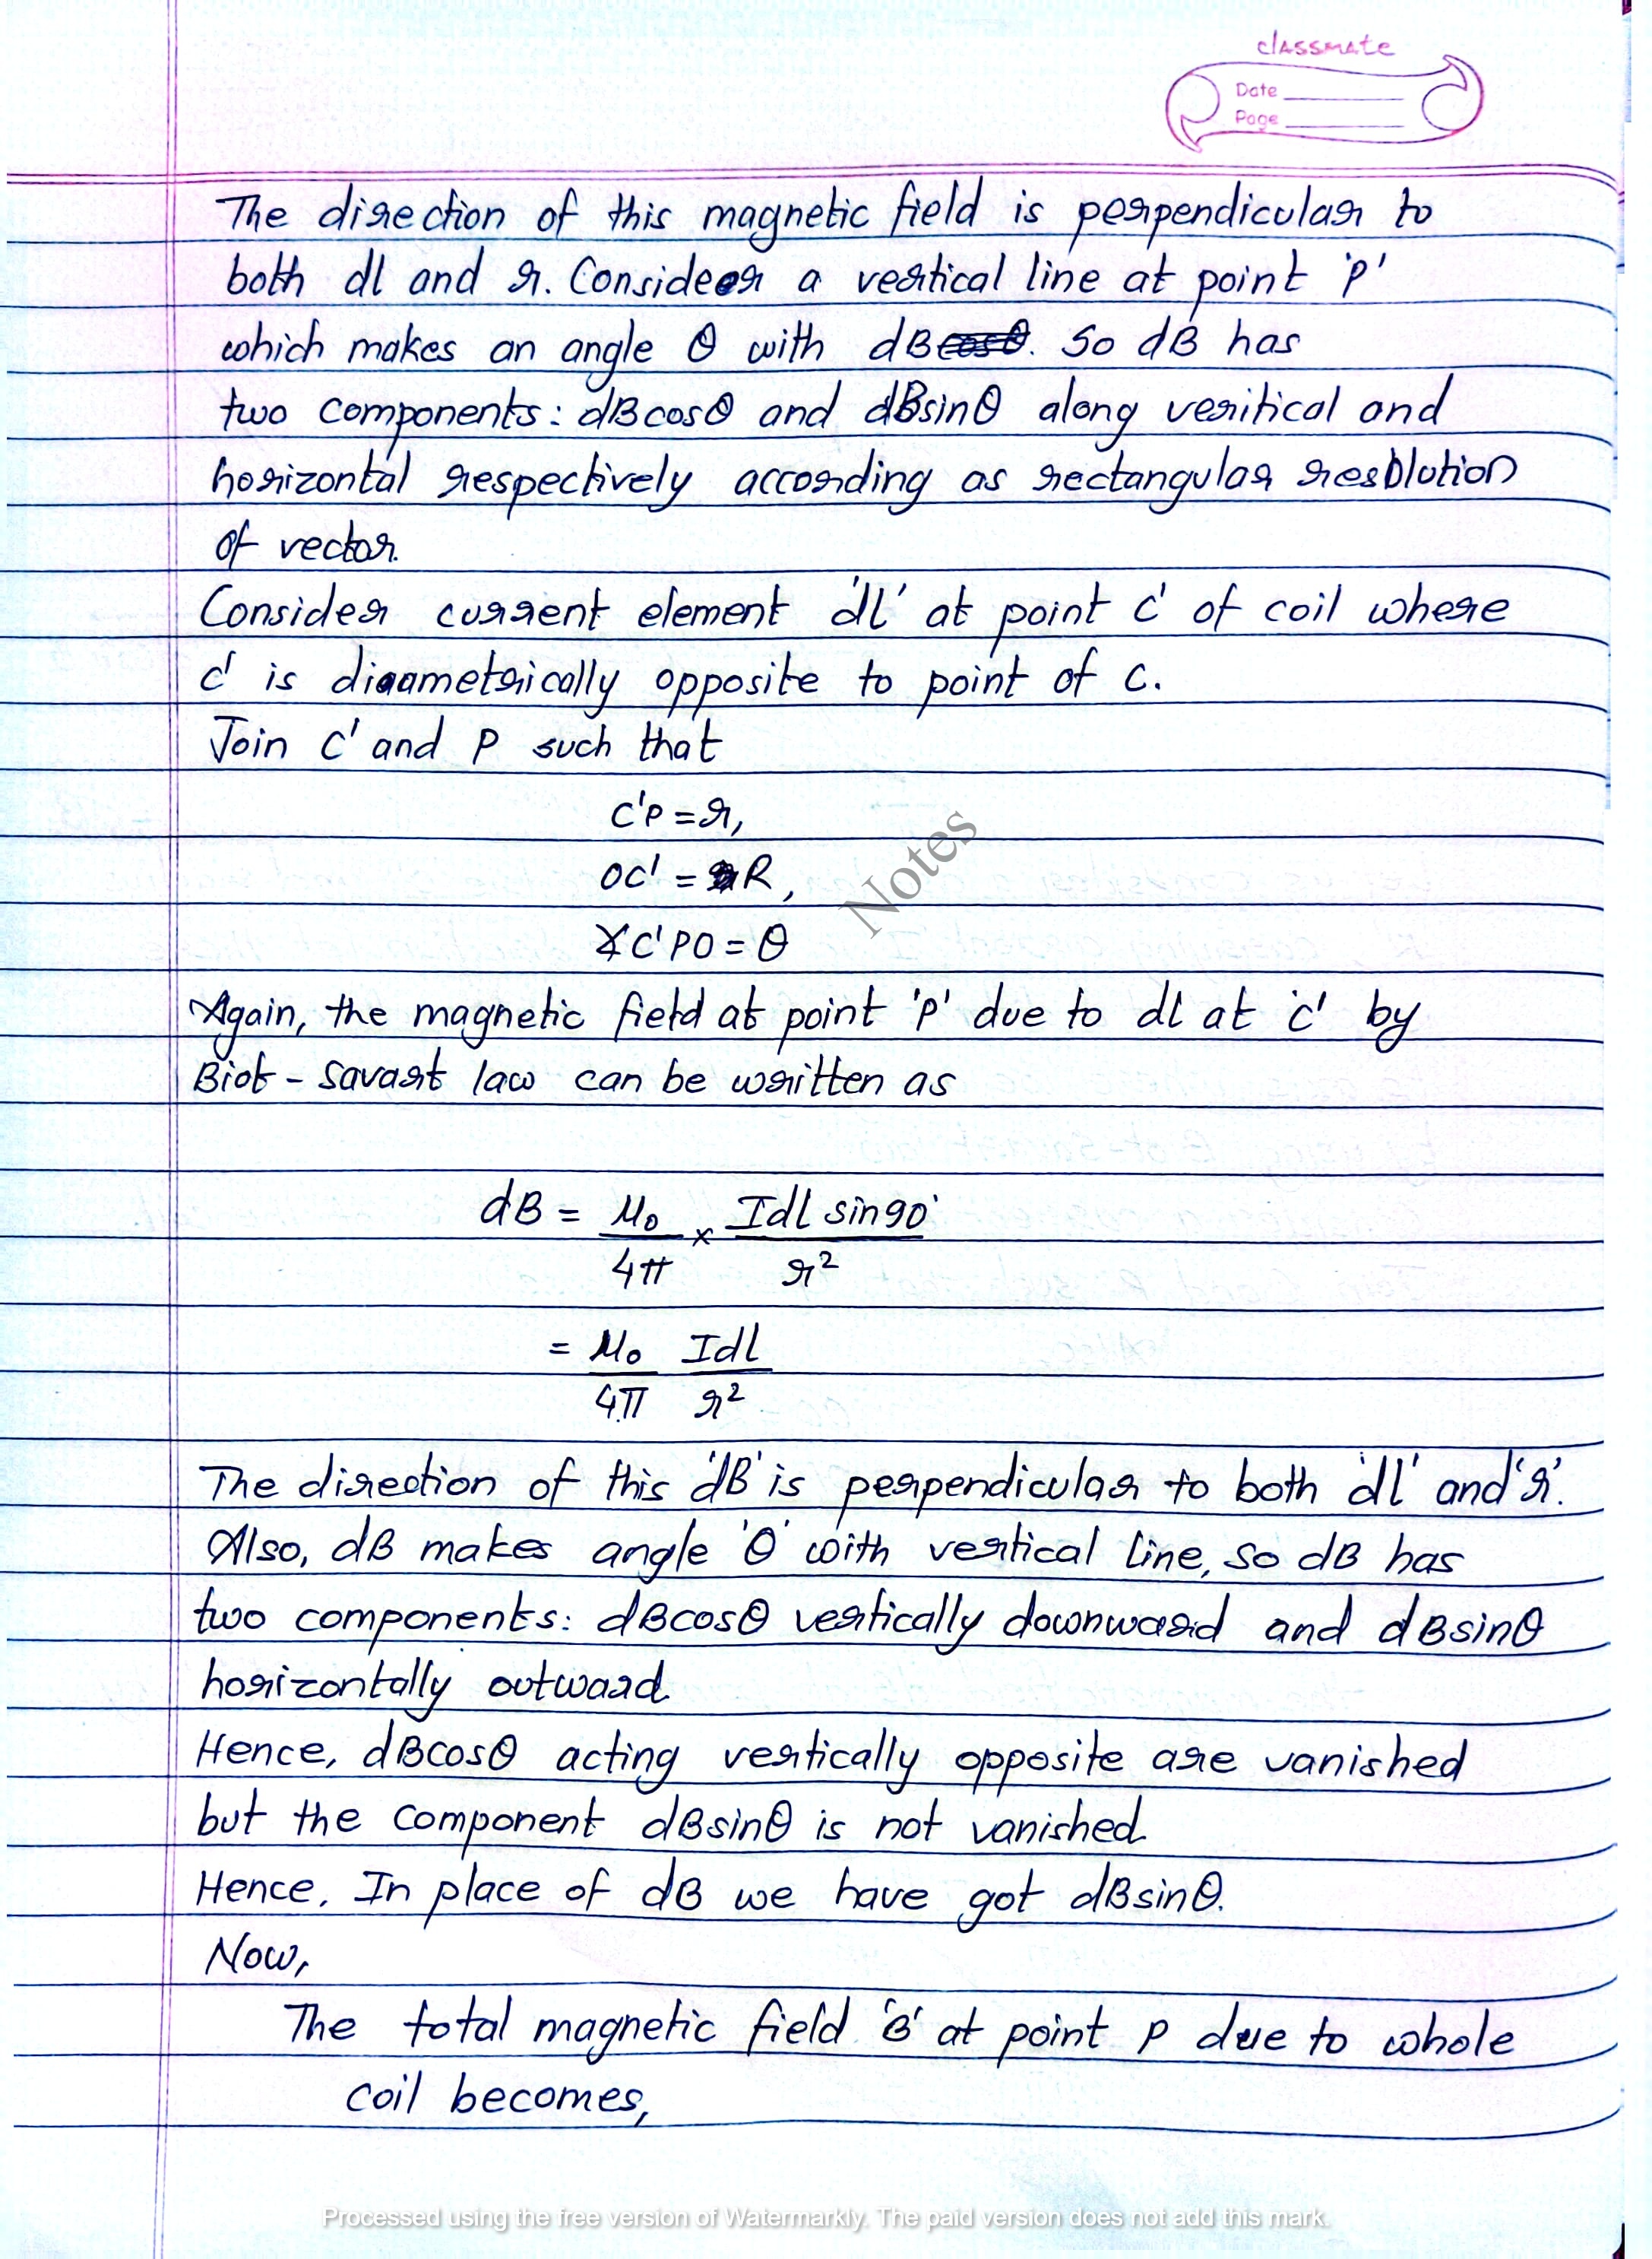 classmate
Date
Page
The direction of this magnetic field is perpendicular to
both dl and r. Consider a vertical line at point 'P'
which makes an angle θ with dB cosθ. So dB has
two components: dBcosθ and dBsinθ along veritical and
horizontal respectively according as rectangular resolution
of vector.
Consider current element 'dl' at point C' of coil where
C' is diaametrically opposite to point of C.
Join C' and P such that
C'P = r,
OC' = R,
∡C'PO = θ
Again, the magnetic field at point 'P' due to dl at C' by
Biot - Savart law can be written as
dB = μ₀/4π × Idl sin90°/r²
= μ₀/4π Idl/r²
The direction of this 'dB' is perpendicular to both 'dl' and 'r'.
Also, dB makes angle 'θ' with vertical line, so dB has
two components: dBcosθ vertically downward and dBsinθ
horizontally outward.
Hence, dBcosθ acting vertically opposite are vanished
but the component dBsinθ is not vanished.
Hence, In place of dB we have got dBsinθ.
Now,
The total magnetic field 'B' at point P due to whole
coil becomes,
Notes
Processed using the free version of Watermarkly. The paid version does not add this mark.